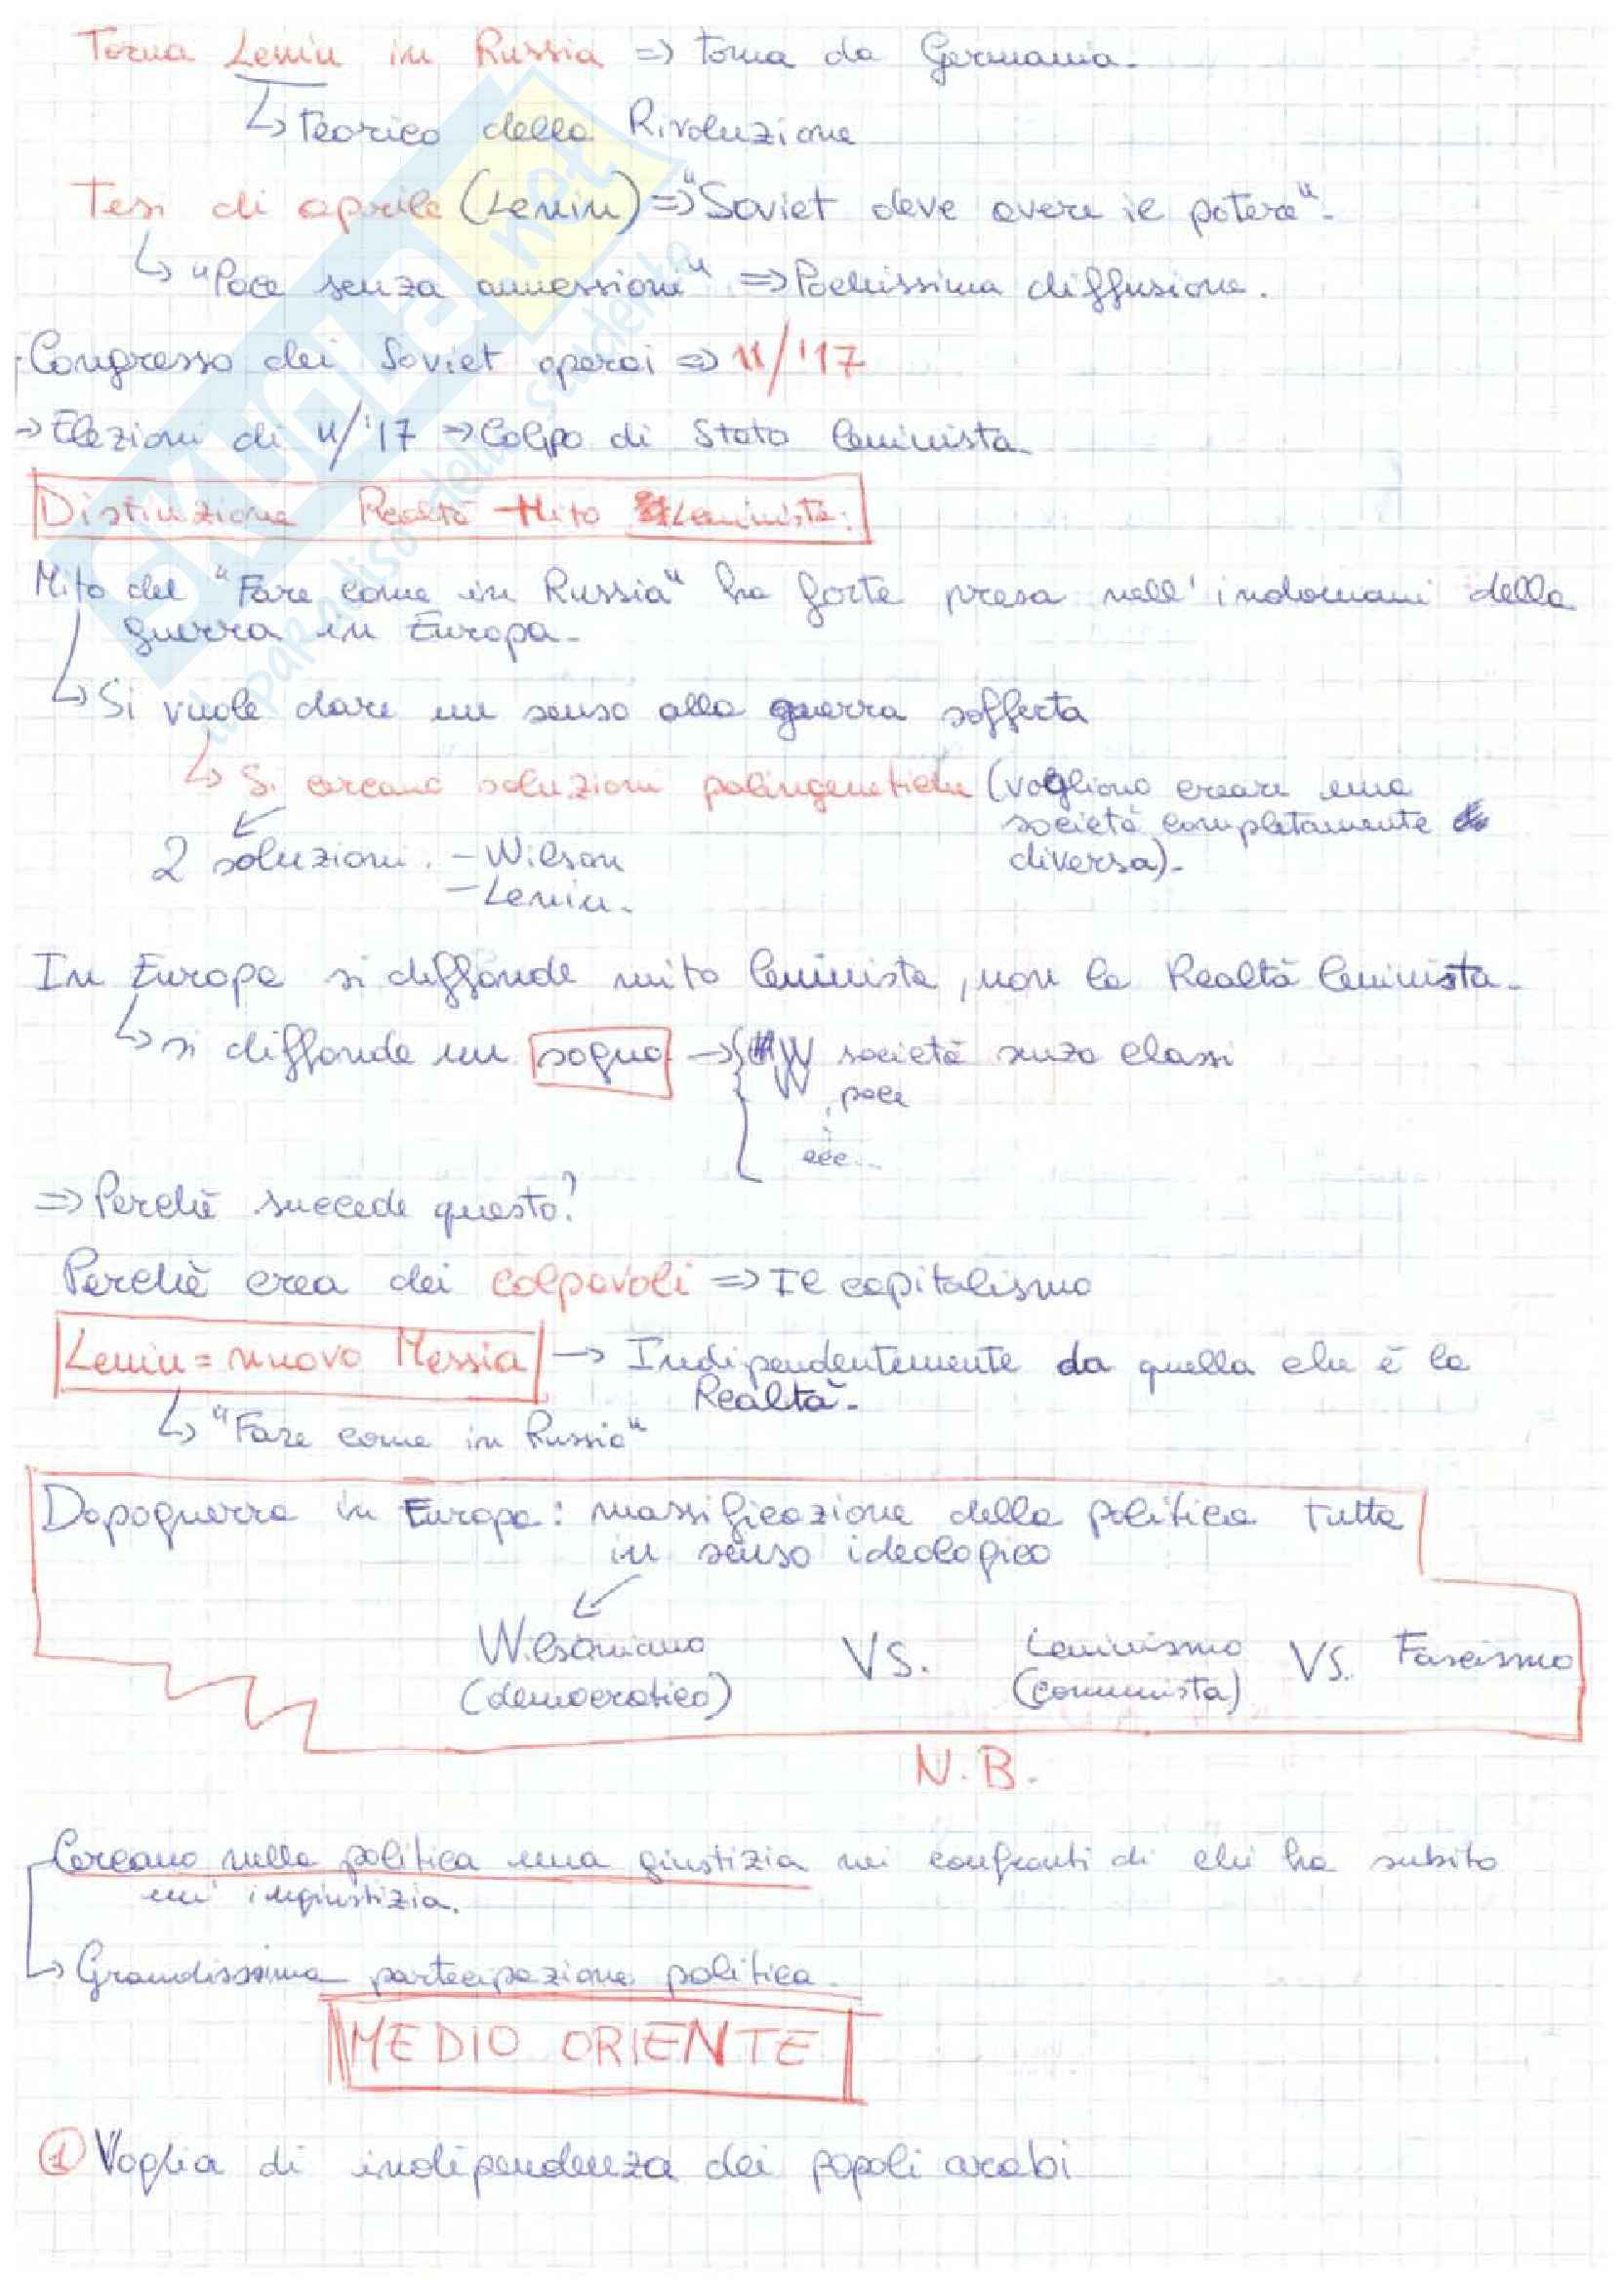 Torna Lenin in Russia => torna da Germania.
↳ teorico della Rivoluzione
Tesi di aprile (Lenin) => "Soviet deve avere il potere".
↳ "Pace senza annessioni" => Pochissima diffusione.
Congresso dei Soviet operai => 11/'17
→ Elezioni di 11/'17 => Colpo di Stato leninista
Distinzione Realtà - Mito Leninista:
Mito del "Fare come in Russia" ha forte presa nell'indomani della
guerra in Europa.
↳ Si vuole dare un senso alla guerra sofferta
↳ Si cercano soluzioni palingenetiche (vogliono creare una
società completamente
diversa).
2 soluzioni. - Wilson
- Lenin.
In Europa si diffonde mito leninista, non la Realtà leninista.
↳ si diffonde un sogno → { società senza classi
pace
ecc...
=> Perchè succede questo?
Perchè crea dei colpevoli => Il capitalismo
Lenin = nuovo Messia → Indipendentemente da quella che è la
Realtà.
↳ "Fare come in Russia"
Dopoguerra in Europa: massificazione della politica tutta
in senso ideologico
Wilsoniano VS. Leninismo VS. Fascismo
(democratico) (comunista)
N.B.
Cercano nella politica una giustizia nei confronti di chi ha subito
un'ingiustizia.
↳ Grandissima partecipazione politica.
MEDIO ORIENTE
1 Voglia di indipendenza dei popoli arabi
SKUOLA.net
il paradiso dello studente